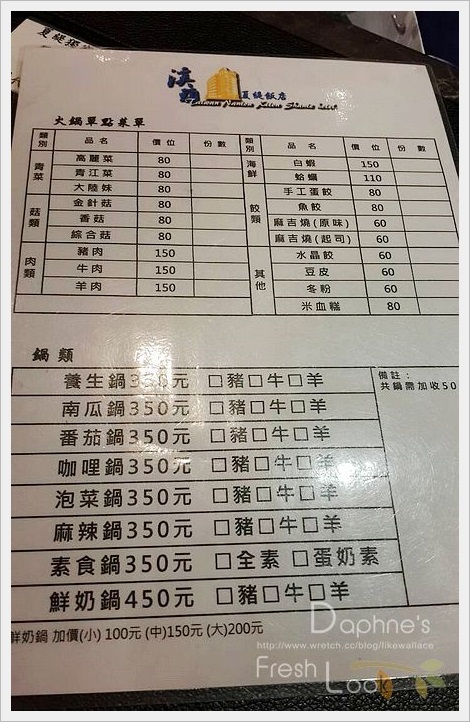 夏緹飯店
火鍋單點菜單
類別 品名 價位 份數 類別 品名 價位 份數
青菜 高麗菜 80 海鮮 白蝦 150
青江菜 80 蛤蠣 110
大陸妹 80 餃類 手工蛋餃 80
菇類 金針菇 80 魚餃 80
香菇 80 麻吉燒(原味) 60
綜合菇 80 麻吉燒(起司) 60
肉類 豬肉 150 其他 水晶餃 60
牛肉 150 豆皮 60
羊肉 150 冬粉 60
米血糕 80
鍋類
養生鍋350元 □豬□牛□羊
備註：
共鍋需加收50
南瓜鍋350元 □豬□牛□羊
番茄鍋350元 □豬□牛□羊
咖哩鍋350元 □豬□牛□羊
泡菜鍋350元 □豬□牛□羊
麻辣鍋350元 □豬□牛□羊
素食鍋350元 □全素 □蛋奶素
鮮奶鍋450元 □豬□牛□羊
鮮奶鍋 加價(小) 100元 (中)150元 (大)200元
Daphne's
http://www.wretch.cc/blog/likewallace
Fresh Look